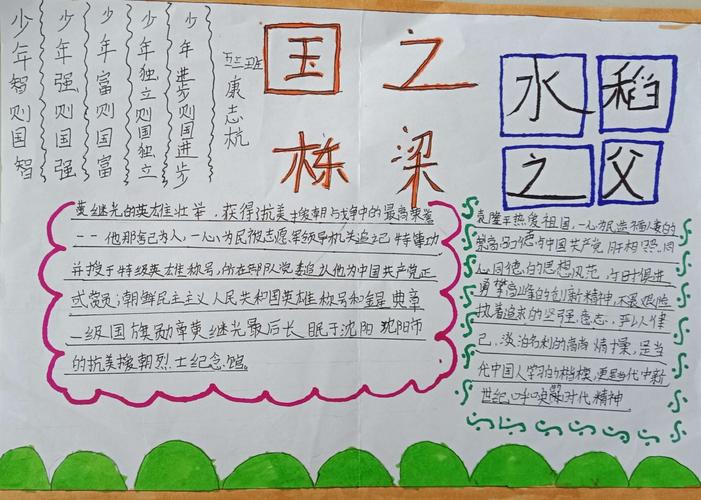 少年智则国智
少年强则国强
少年富则国富
少年独立则国独立
少年进步则国进步
五三班
康志杭
国之
栋梁
水稻
之父
黄继光的英雄壮举，获得抗美援朝战争中的最高荣誉
一一他那舍己为人，一心为民被志愿军领导机关追记特等功，
并授于特级英雄称号，所在部队党委追认他为中国共产党正
式党员；朝鲜民主主义人民共和国英雄称号和金星奖章
一级国旗勋章黄继光最后长眠于沈阳沈阳市
的抗美援朝烈士纪念馆。
袁隆平热爱祖国，一心为民造福人类的
崇高品德与中国共产党肝相照，同
心同德的思想风范，与时俱进
勇攀高峰的创新精神，不畏艰险
执着追求的坚强意志，严以律
己，淡泊名利的高尚情操，是当
代中国人学习的楷模，更是当代中新
世纪呼唤的时代精神